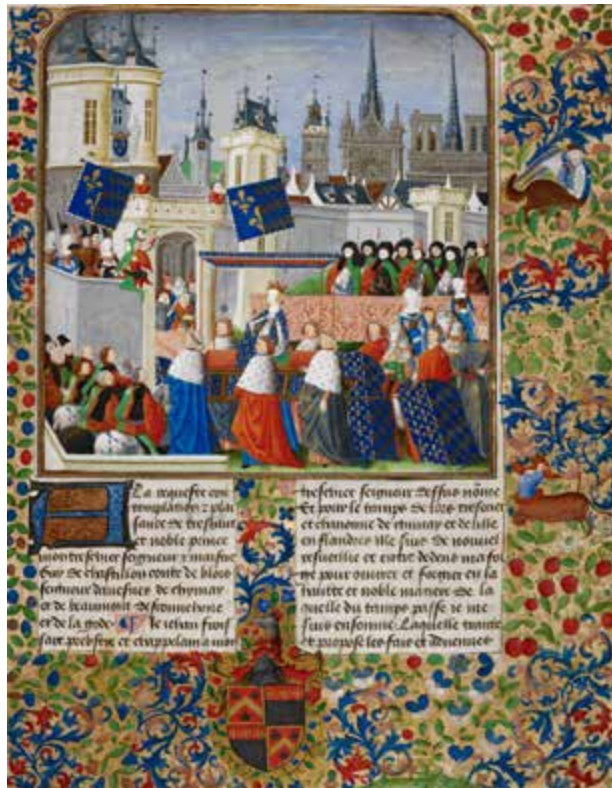 A la requeste con
templation z plai
sance de treshault
et noble prince
mon treschier seigneur z maistre
Guy de chastillon conte de blois
seigneur davesnes de chymay
et de beaumont
et de la gode Je Jehan frois
sart prebstre et chappelain a mon
treschier seigneur dessus nõme
Et pour le temps de lors tresorier
et chanonne de chimay et de lille
en flandres me suis de nouvel
resveillie et entre dedens ma for
ge pour ouvrer et forgier en la
haulte et noble matiere de la
quelle du temps passe je me
suis ensonnie Laquelle traitte
et propose les fais et advenues